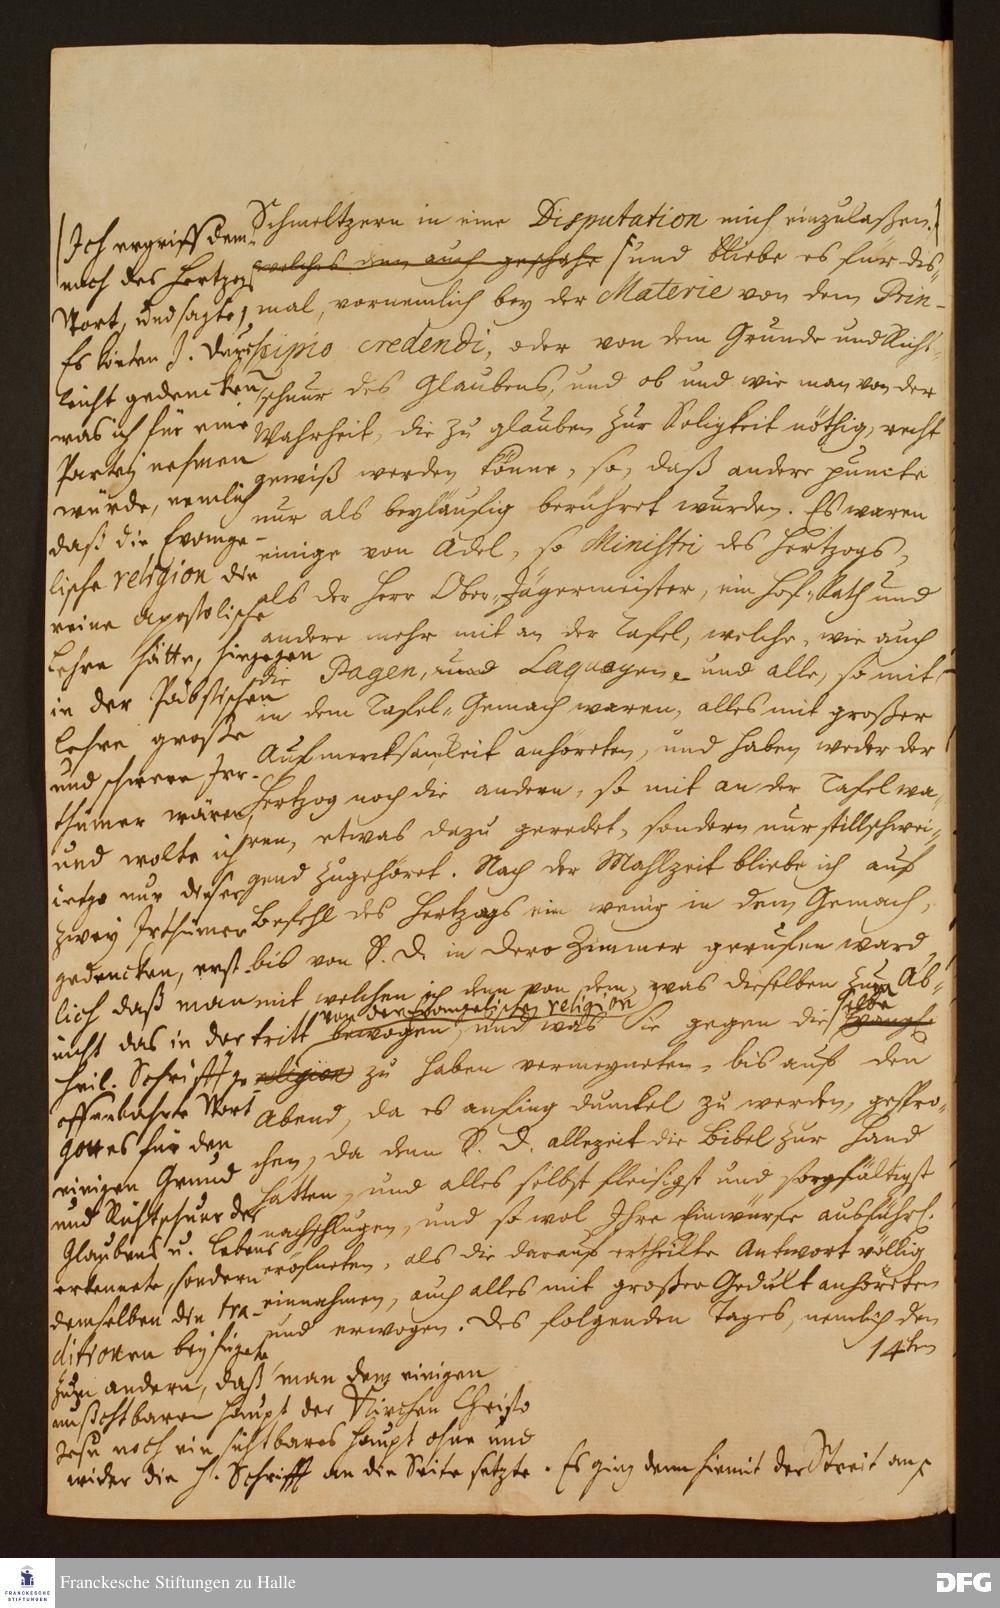 Schmeltzern in eine Disputation mich einzulaßen.
welches dem auch geschahe und bliebe es für dis-
mal, vornemlich bey der Materie von dem Prin-
cipio credendi, oder von dem Grunde und Richt-
schnur des Glaubens, und ob und wie man von der
Wahrheit, die zu glauben zur Seligkeit nöthig, recht
gewiß werden könne, so, daß andere puncte
nur als beyläufig berühret wurden. Es waren
einige von Adel, so Ministri des Hertzogs,
als der Herr Ober-Jägermeister, ein Hof-Rath und
andere mehr mit an der Tafel, welche, wie auch
die Pagen, und Laquayen und alle, so mit
in dem Tafel-Gemach waren, alles mit großer
Aufmercksamkeit anhöreten, und haben weder der
Hertzog noch die andern, so mit an der Tafel wa-
ren, etwas dazu geredet, sondern nur stillschwei-
gend zugehöret. Nach der Mahlzeit bliebe ich auf
Befehl des Hertzogs ein wenig in dem Gemach,
bis von S. D. in dero Zimmer gerufen ward
mit welchen ich denn von dem, was dieselben zum Ab-
von der Evangelischen religion
tritt bewogen, und was Sie gegen dieselbe Evangel.
religion zu haben vermeyneten, bis auf den
Abend, da es anfing dunckel zu werden, gespro-
chen, da denn S. D. allezeit die Bibel zur Hand
hatten, und alles selbst fleisigst und sorgfältigst
nachschlugen, und so wol Ihre Einwürfe ausführl.
eröfneten, als die darauf ertheilte Antwort völlig
einnahmen, auch alles mit großer Gedult anhöreten
und erwogen. Des folgenden Tages, nemlich den
14ten
Ich ergriff dem-
nach des Hertzogs
Wort, und sagte,
Es könten J. Durchl.
leicht gedencken
was ich für eine
Partey nehmen
würde, nemlich
daß die Evange-
lische religion die
reine Apostolische
Lehre hätte, hingegen
in der Päbstischen
Lehre große
und schwere Irr-
thümer wären,
und wolte ich
ietzo nur dieser
zwey Irthümer
gedencken, erst-
lich daß man
nicht das in der
Heil. Schrifft ge-
offenbahrte Wort
Gottes für den
einigen Grund
und Richtschnur des
Glaubens u. Lebens
erkennete, sondern
demselben die tra-
ditionen beyfügete
zum andern, daß man dem einigen
unsichtbaren Haupt der Kirchen Christo
Jesu noch ein sichtbares Haupt ohne und
wider die H. Schrifft an die Seite setzte. Es ging denn hiermit der Streit an
Franckesche Stiftungen zu Halle
FRANCKESCHE
STIFTUNGEN
DFG